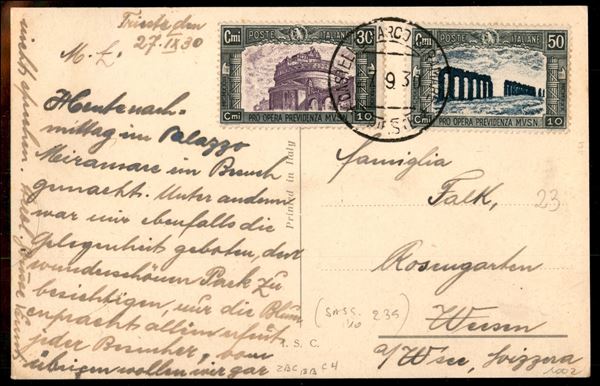 Trieste den
27. IX 30
M. L.
Heute nach-
mittag im Palazzo
Miramare im Besuch
gemacht. Unter anderem
war mir ebenfalls die
Gelegenheit geboten, den
wunderschönen Park zu
besichtigen, nur die Blum
enpracht allein erfüllt
jeder Besucher, vom
übrigen wollen wir gar
nicht
Cmi POSTE ITALIANE 30
PRO OPERA PREVIDENZA MVSN.
Cmi 10
Cmi POSTE ITALIANE 50
PRO OPERA PREVIDENZA MVSN.
Cmi 10
9.3
Printed in Italy
famiglia
Falk,
23
Rosengarten
(SASS. 239)
10
Weesen
a/Wsee, Svizzera
I. S. C.
1002